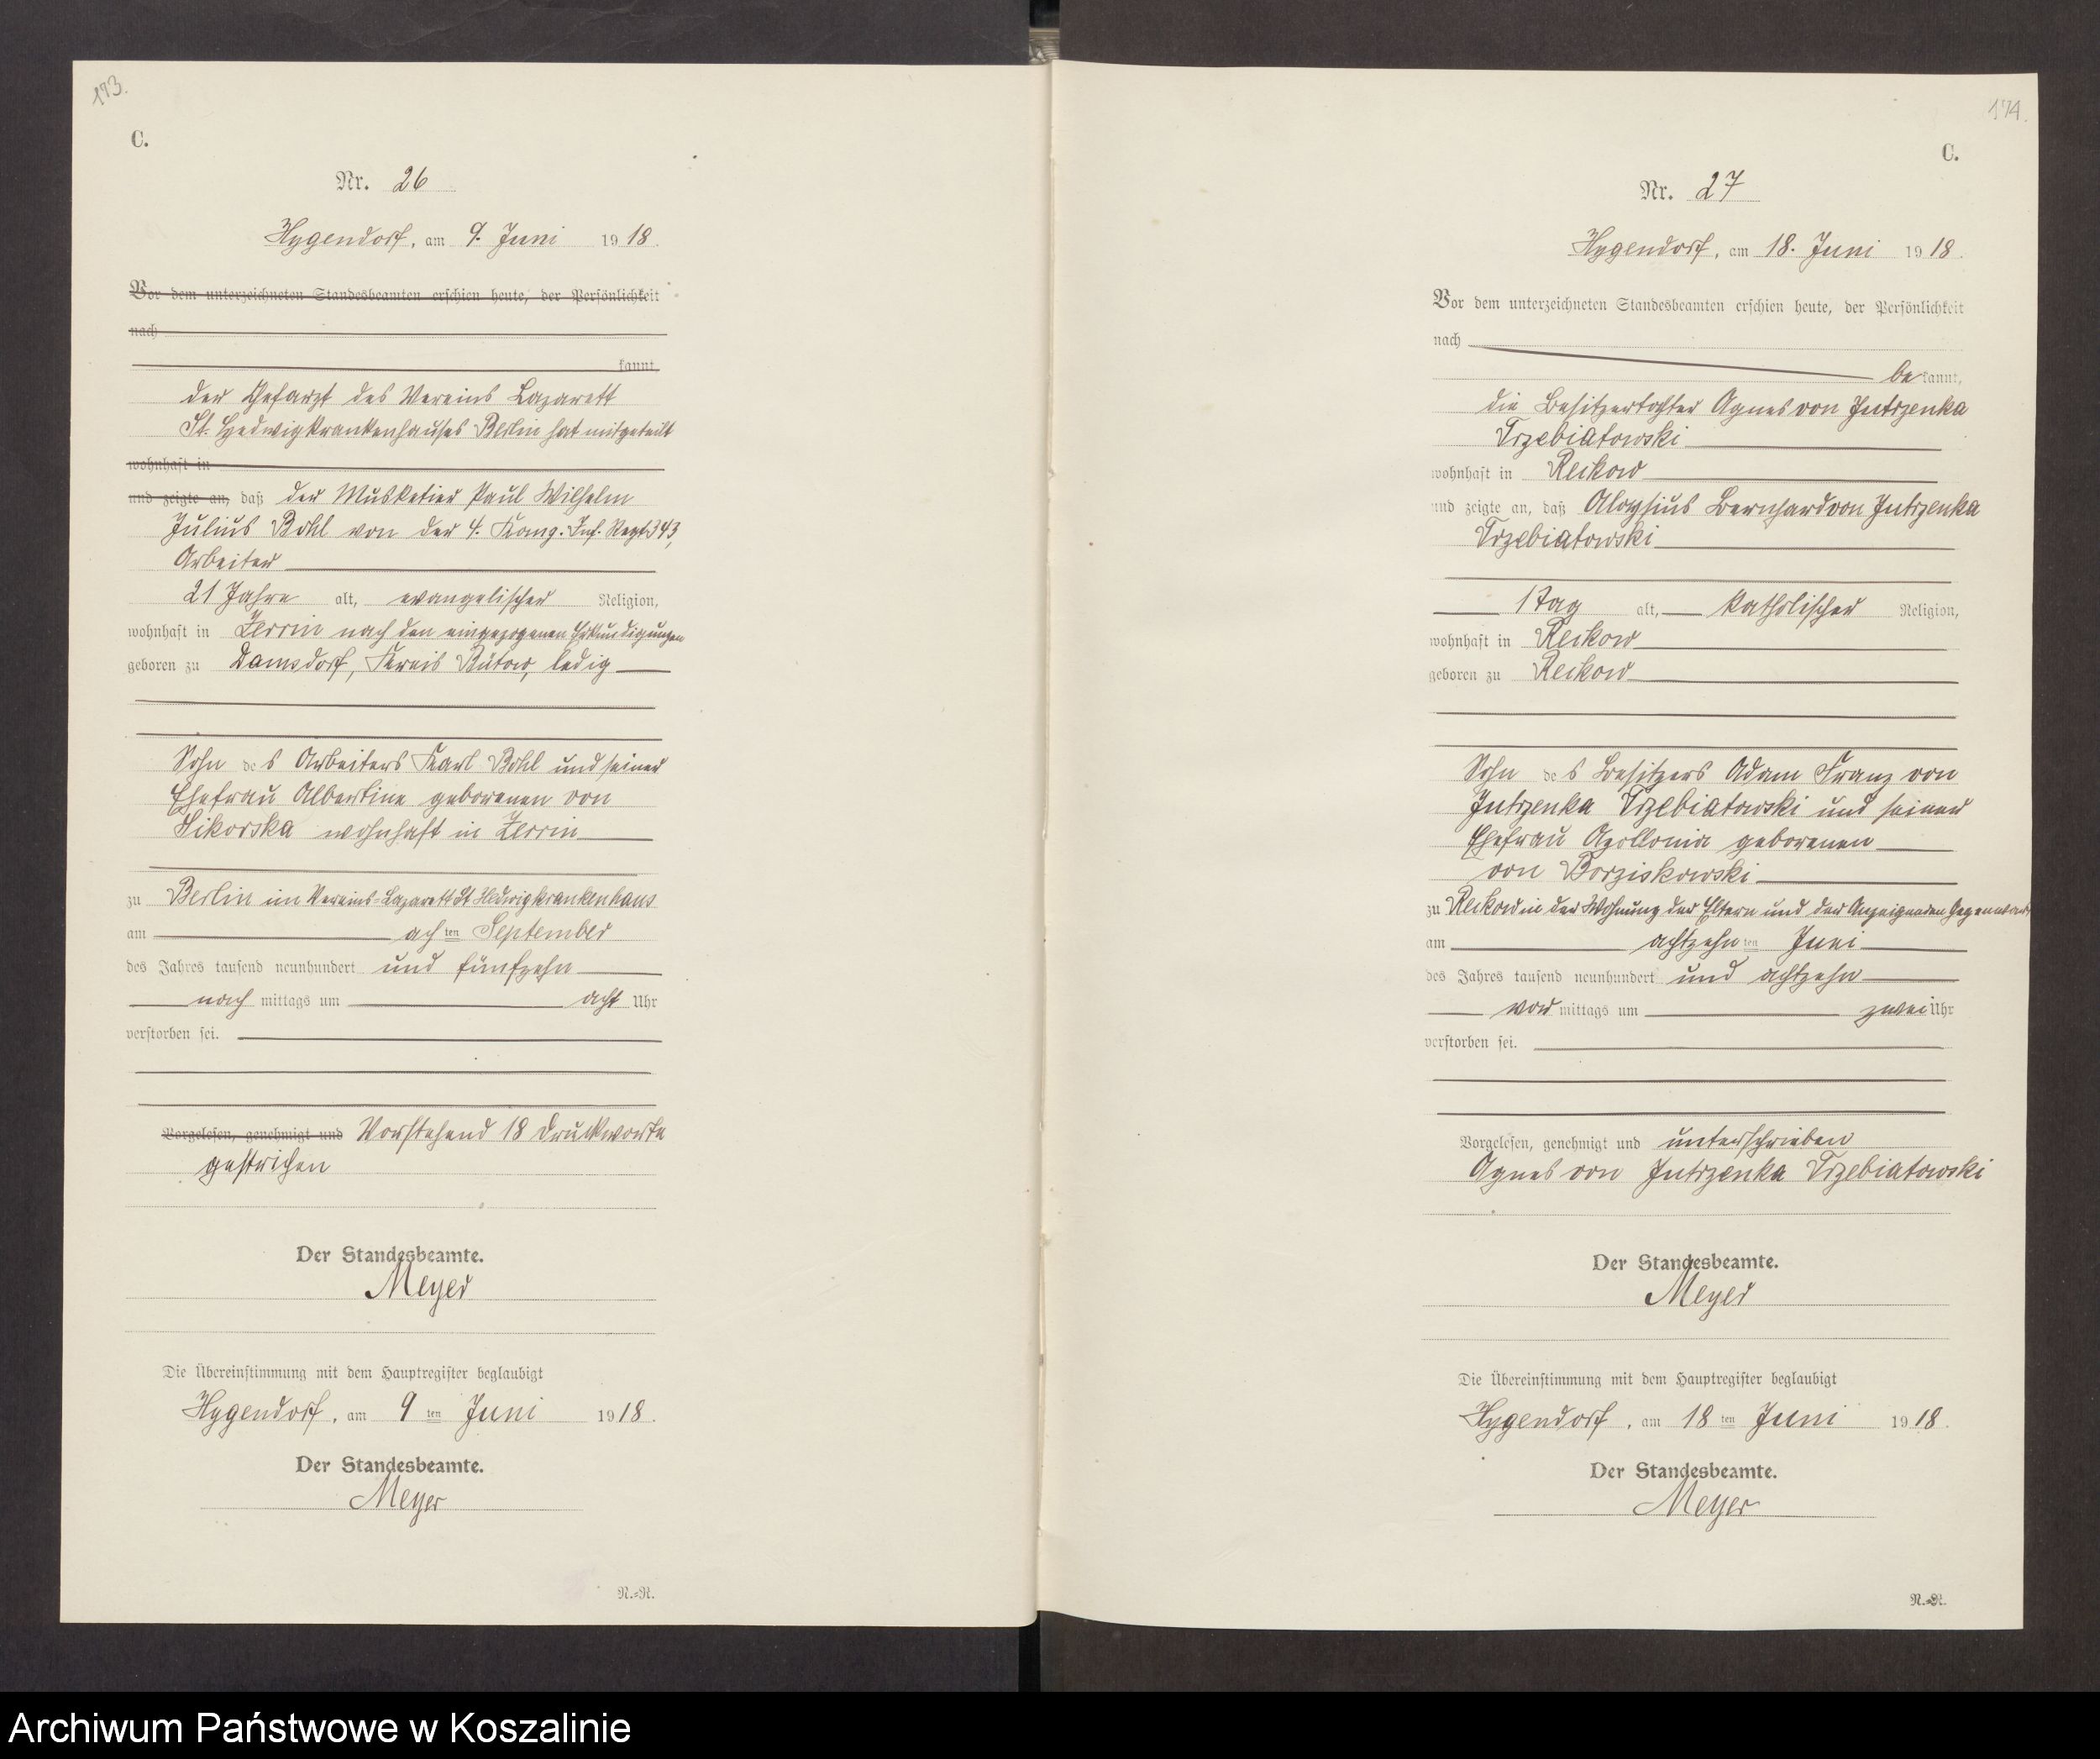 173.
C.
Nr. 26
Hygendorf, am 9. Juni 1918.
Vor dem unterzeichneten Standesbeamten erschien heute, der Persönlichkeit
nach
kannt,
der Chefarzt des Vereins Lazarett
St. Hedwigkrankenhauses Berlin hat mitgeteilt
wohnhaft in
und zeigte an, daß der Musketier Paul Wilhelm
Julius Bohl von der 4. Komp. Inf. Regt 343,
Arbeiter
21 Jahre alt, evangelischer Religion,
wohnhaft in Zerrin nach den eingezogenen Erkundigungen
geboren zu Damsdorf, Kreis Bütow, ledig
Sohn des Arbeiters Karl Bohl und seiner
Ehefrau Albertine geborenen von
Sikorska wohnhaft in Zerrin
zu Berlin im Vereins-Lazarett St Hedwigkrankenhaus
am achten September
des Jahres tausend neunhundert und fünfzehn
nach mittags um acht Uhr
verstorben sei.
Vorgelesen, genehmigt und Vorstehend 18 Druckworte
gestrichen
Der Standesbeamte.
Meyer
Die Übereinstimmung mit dem Hauptregister beglaubigt
Hygendorf, am 9ten Juni 1918.
Der Standesbeamte.
Meyer
N.=R.
174.
C.
Nr. 27
Hygendorf, am 18. Juni 1918.
Vor dem unterzeichneten Standesbeamten erschien heute, der Persönlichkeit
nach
bekannt,
die Besitzertochter Agnes von Jutrzenka
Trzebiatowski
wohnhaft in Reckow
und zeigte an, daß Aloysius Bernhard von Jutrzenka
Trzebiatowski
1 Tag alt, katholischer Religion,
wohnhaft in Reckow
geboren zu Reckow
Sohn des Besitzers Adam Franz von
Jutrzenka Trzebiatowski und seiner
Ehefrau Apollonia geborenen
von Borziskowski
zu Reckow in der Wohnung der Eltern und der Anzeigenden Gegenwart
am achtzehnten Juni
des Jahres tausend neunhundert und achtzehn
vor mittags um zwei Uhr
verstorben sei.
Vorgelesen, genehmigt und unterschrieben
Agnes von Jutrzenka Trzebiatowski
Der Standesbeamte.
Meyer
Die Übereinstimmung mit dem Hauptregister beglaubigt
Hygendorf, am 18ten Juni 1918.
Der Standesbeamte.
Meyer
N.=R.
Archiwum Państwowe w Koszalinie